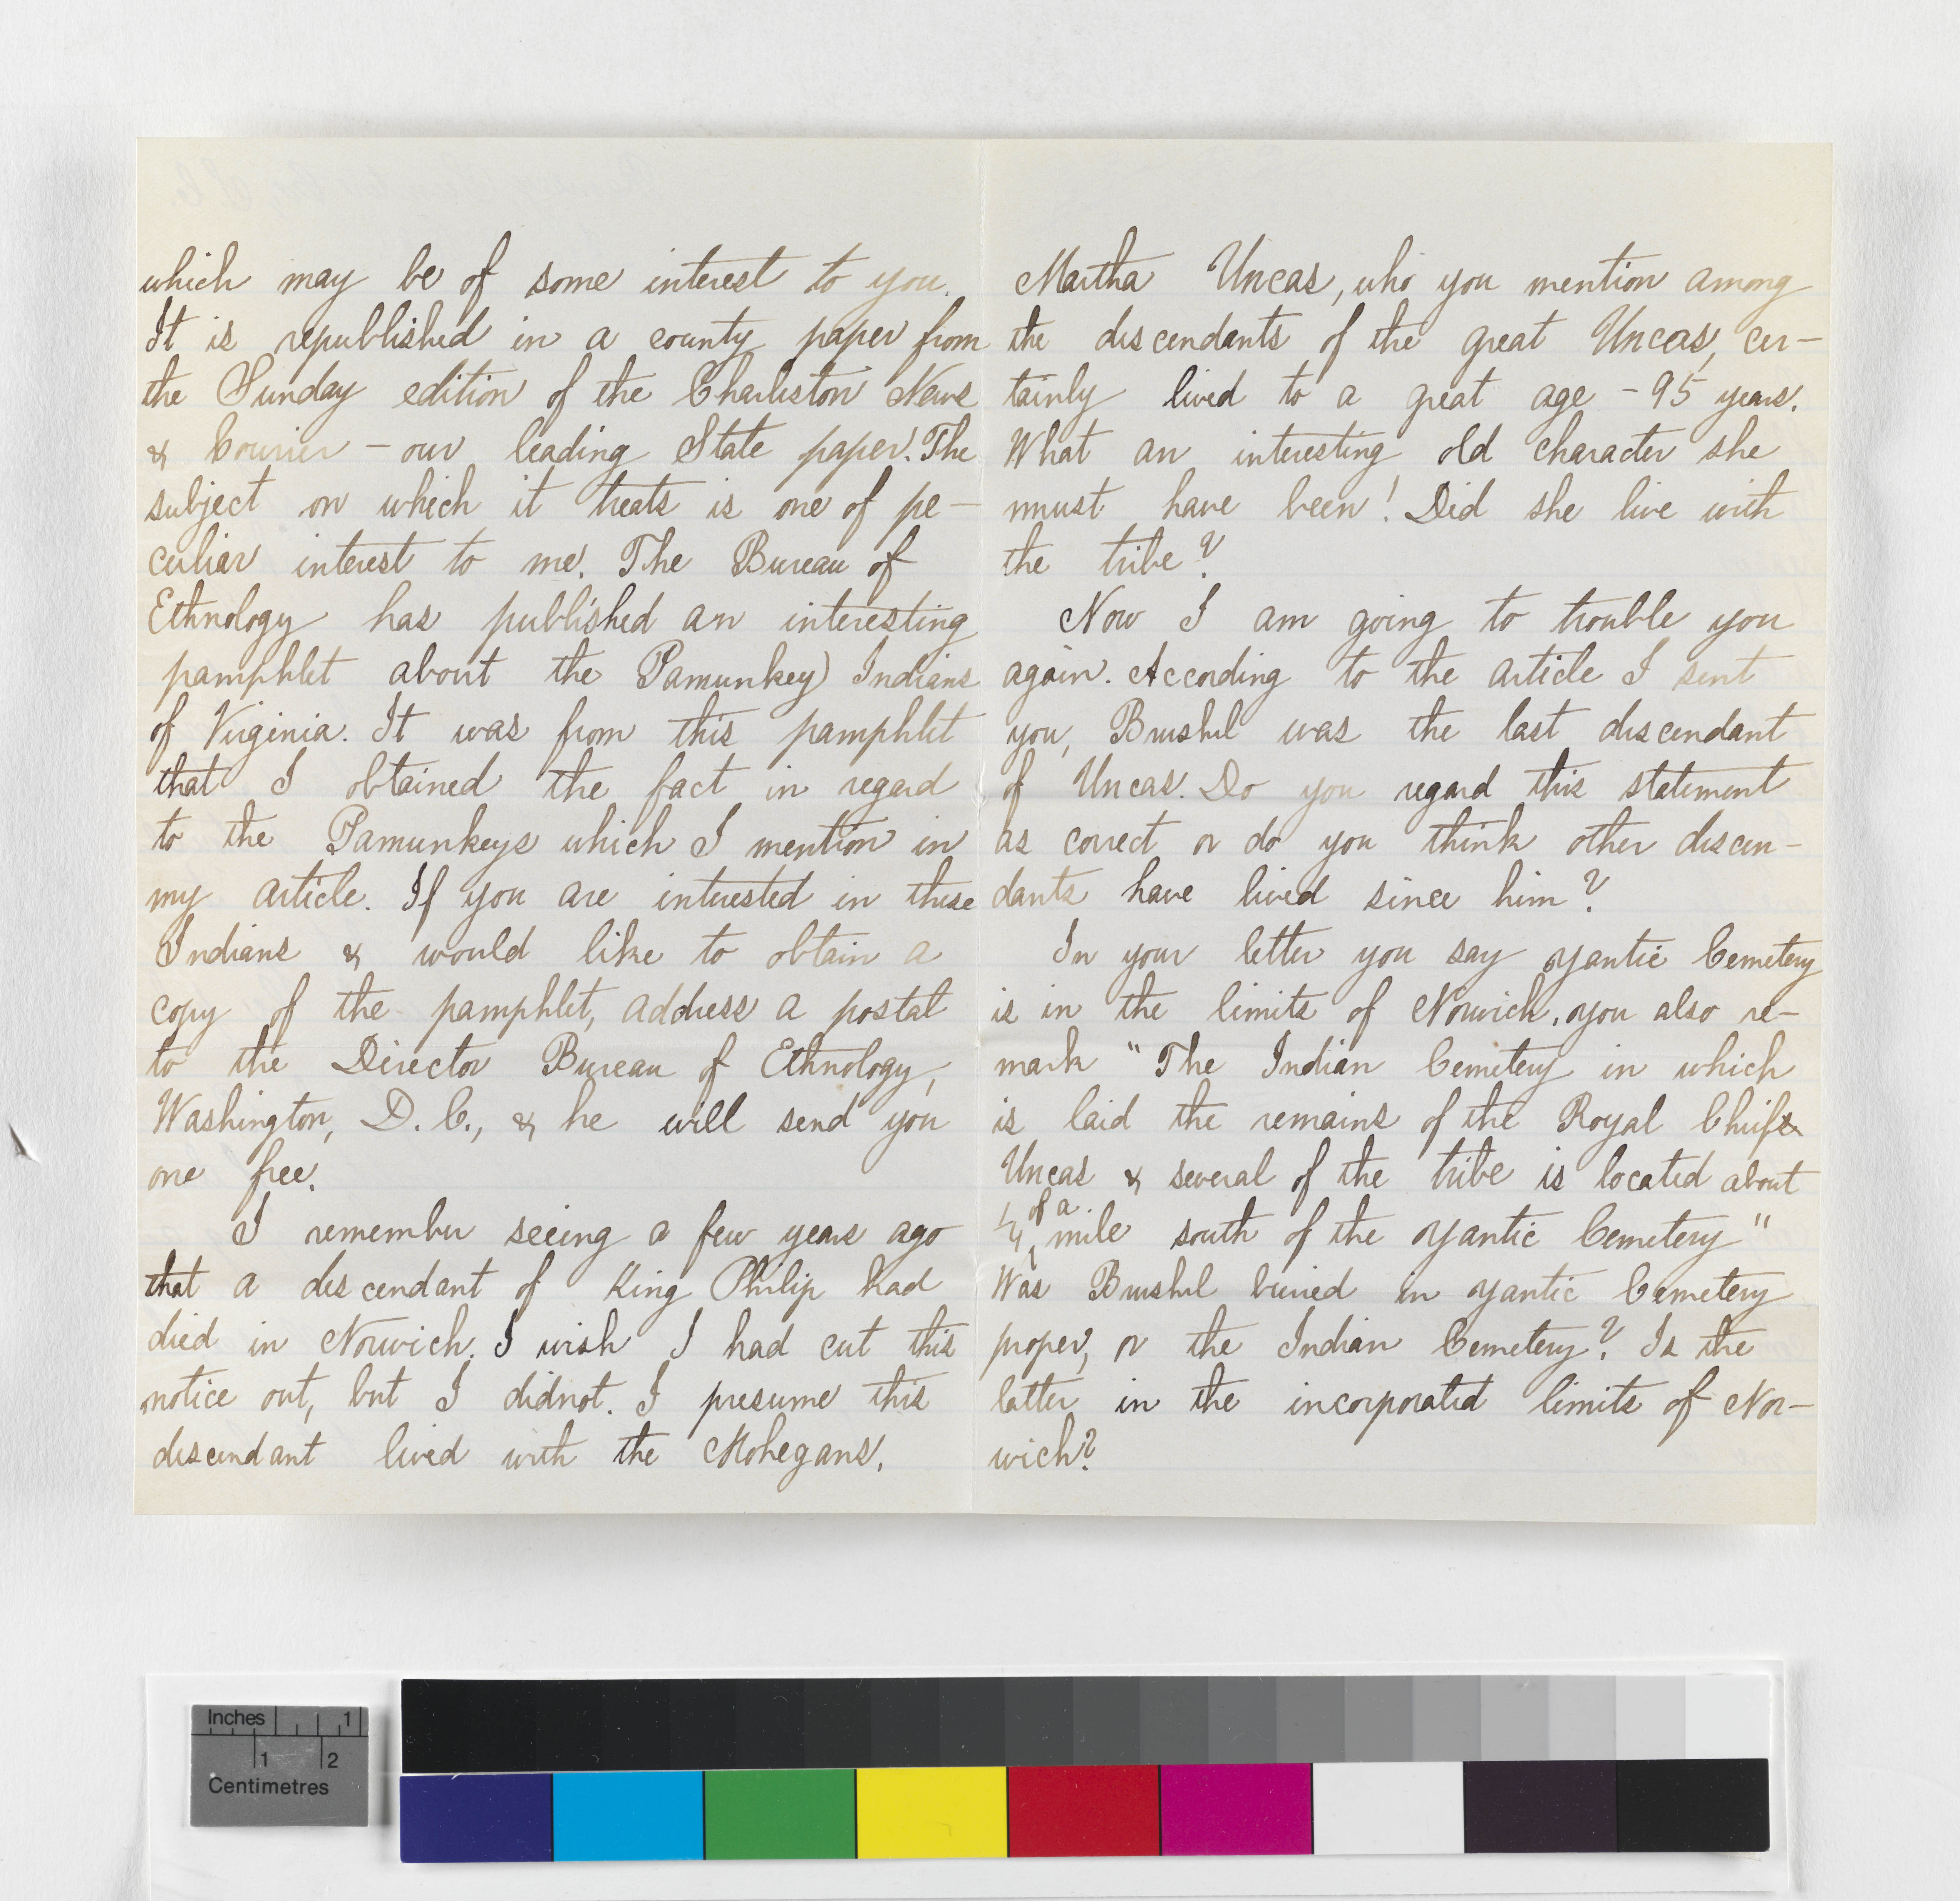 which may be of some interest to you.
It is republished in a county paper from
the Sunday edition of the Charleston News
& Courier – our leading State paper. The
subject on which it treats is one of pe–
culiar interest to me. The Bureau of
Ethnology has published an interesting
pamphlet about the Pamunkey Indians
of Virginia. It was from this pamphlet
that I obtained the fact in regard
to the Pamunkeys which I mention in
my article. If you are interested in these
Indians & would like to obtain a
copy of the pamphlet, address a postal
to the Director Bureau of Ethnology,
Washington, D. C., & he will send you
one free.
I remember seeing a few years ago
that a descendant of King Philip had
died in Norwich. I wish I had cut this
notice out, but I didnot. I presume this
descendant lived with the Mohegans.
Martha Uncas, who you mention among
the descendants of the great Uncas, cer–
tainly lived to a great age – 95 years.
What an interesting old character she
must have been! Did she live with
the tribe?
Now I am going to trouble you
again. According to the article I sent
you, Brushel was the last descendant
of Uncas. Do you regard this statement
as correct or do you think other descen–
dants have lived since him?
In your letter you say Yantic Cemetery
is in the limits of Norwich. You also re–
mark "The Indian Cemetery in which
is laid the remains of the Royal Chiefs
Uncas & several of the tribe is located about
1/4 of a mile south of the Yantic Cemetery"
Was Brushel buried in Yantic Cemetery
proper, or the Indian Cemetery? Is the
latter in the incorporated limits of Nor–
wich?
Inches 1
1 2
Centimetres